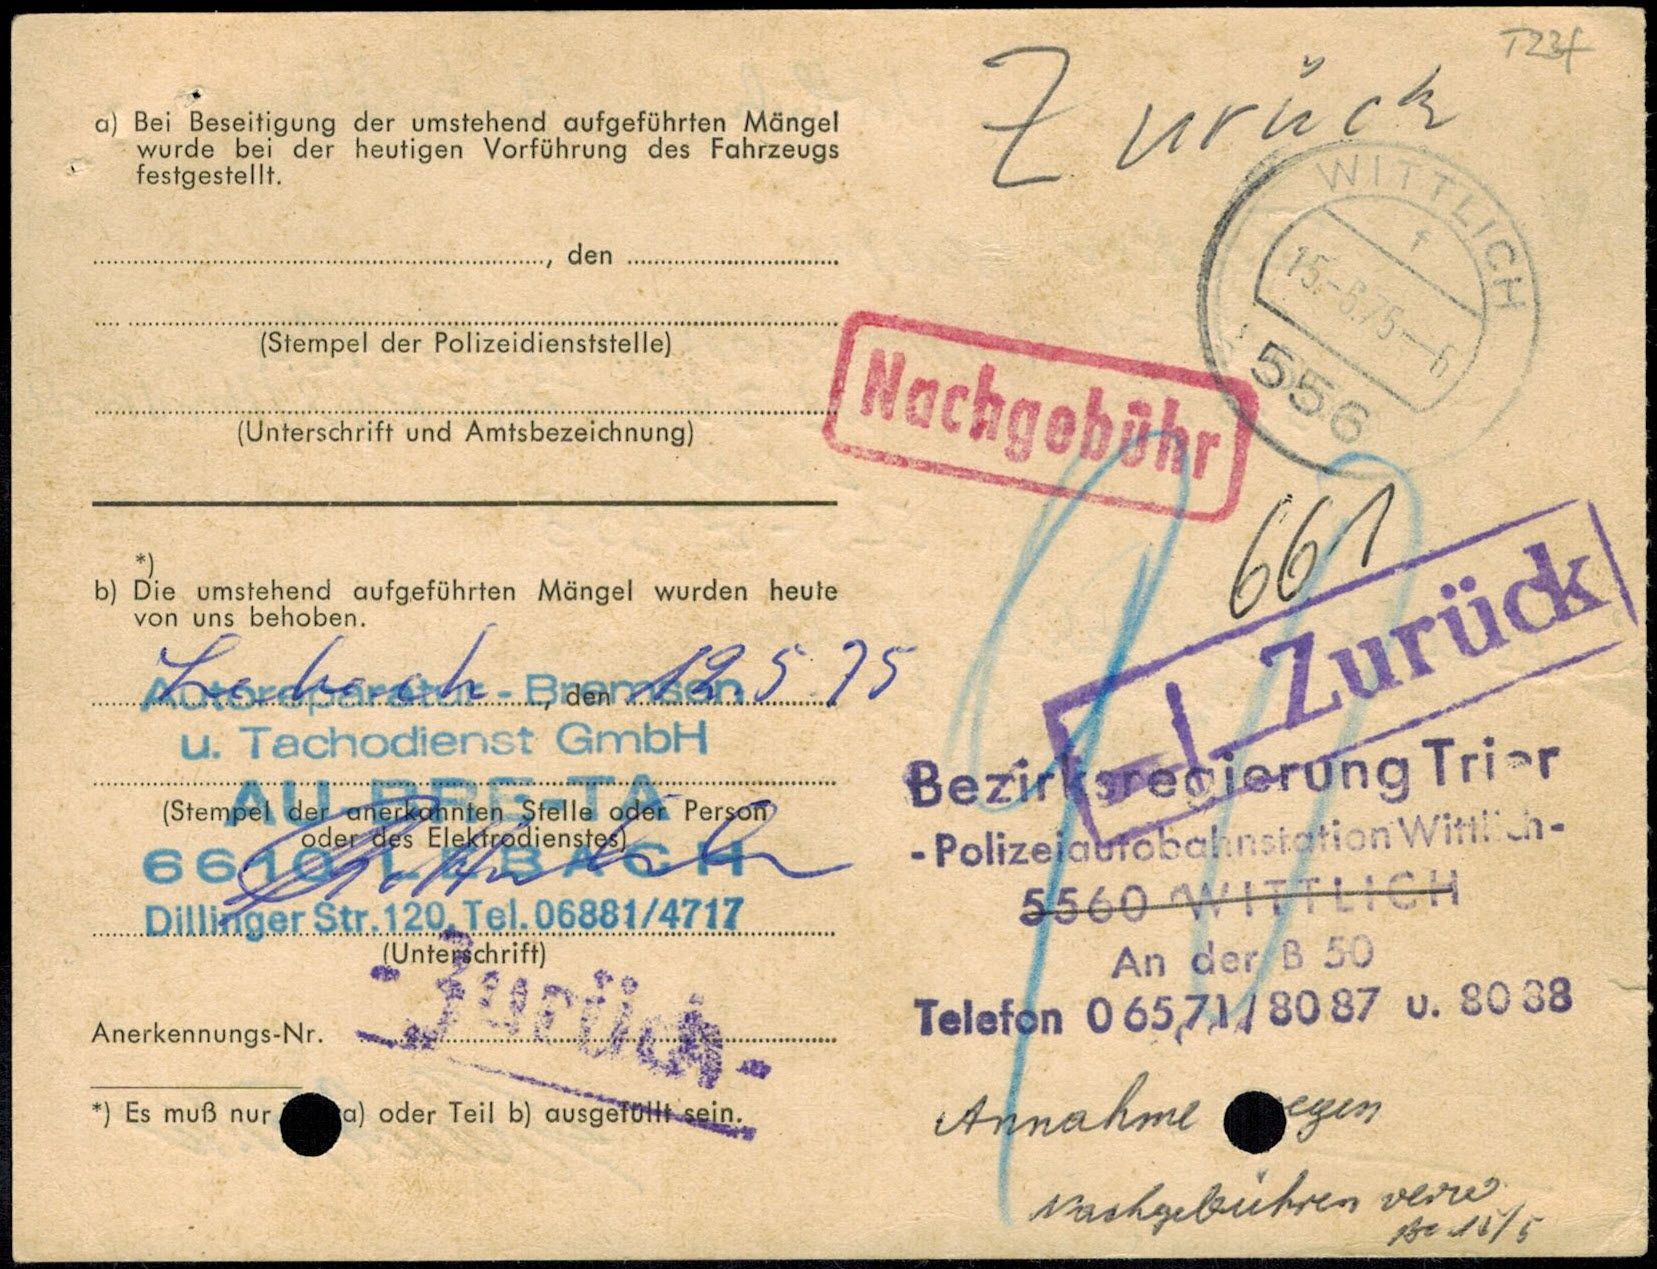 T23f
Zurück
a) Bei Beseitigung der umstehend aufgeführten Mängel
wurde bei der heutigen Vorführung des Fahrzeugs
festgestellt.
, den
(Stempel der Polizeidienststelle)
(Unterschrift und Amtsbezeichnung)
WITTLICH
f
556
Nachgebühr
661
Zurück
*)
b) Die umstehend aufgeführten Mängel wurden heute
von uns behoben.
Lebach, den 12.5.75
Autoreparatur - Bremsen
u. Tachodienst GmbH
AU-BRE-TA
(Stempel der anerkannten Stelle oder Person
oder des Elektrodienstes)
6610 LEBACH
Dillinger Str. 120, Tel. 06881/4717
(Unterschrift)
- Zurück -
Anerkennungs-Nr.
*) Es muß nur a) oder Teil b) ausgefüllt sein.
Bezirksregierung Trier
- Polizeiautobahnstation Wittlich -
5560 WITTLICH
An der B 50
Telefon 0 65 71 / 80 87 u. 80 88
Annahme wegen
Nachgebühren verw
15/5